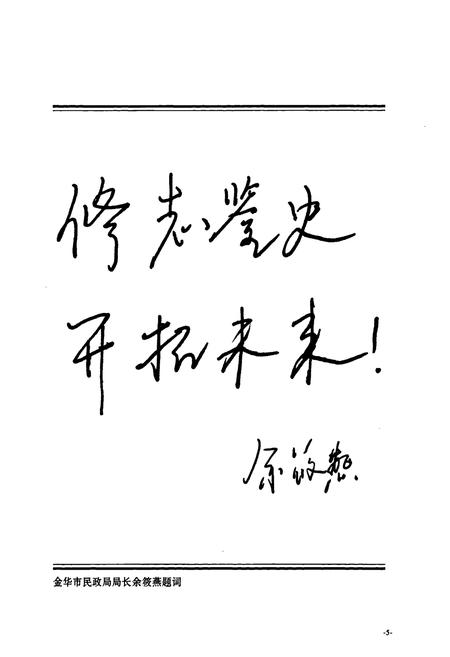 修志鉴史
开拓未来!
余筱燕
金华市民政局局长余筱燕题词
-5-